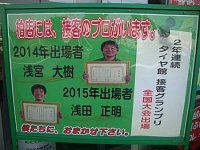 当店には、接客のプロがいます。
2014年出場者
浅宮 大樹
2015年出場者
浅田 正明
2年連続
タイヤ館 接客グランプリ
全国大会出場
僕たちに、おまかせ下さい。